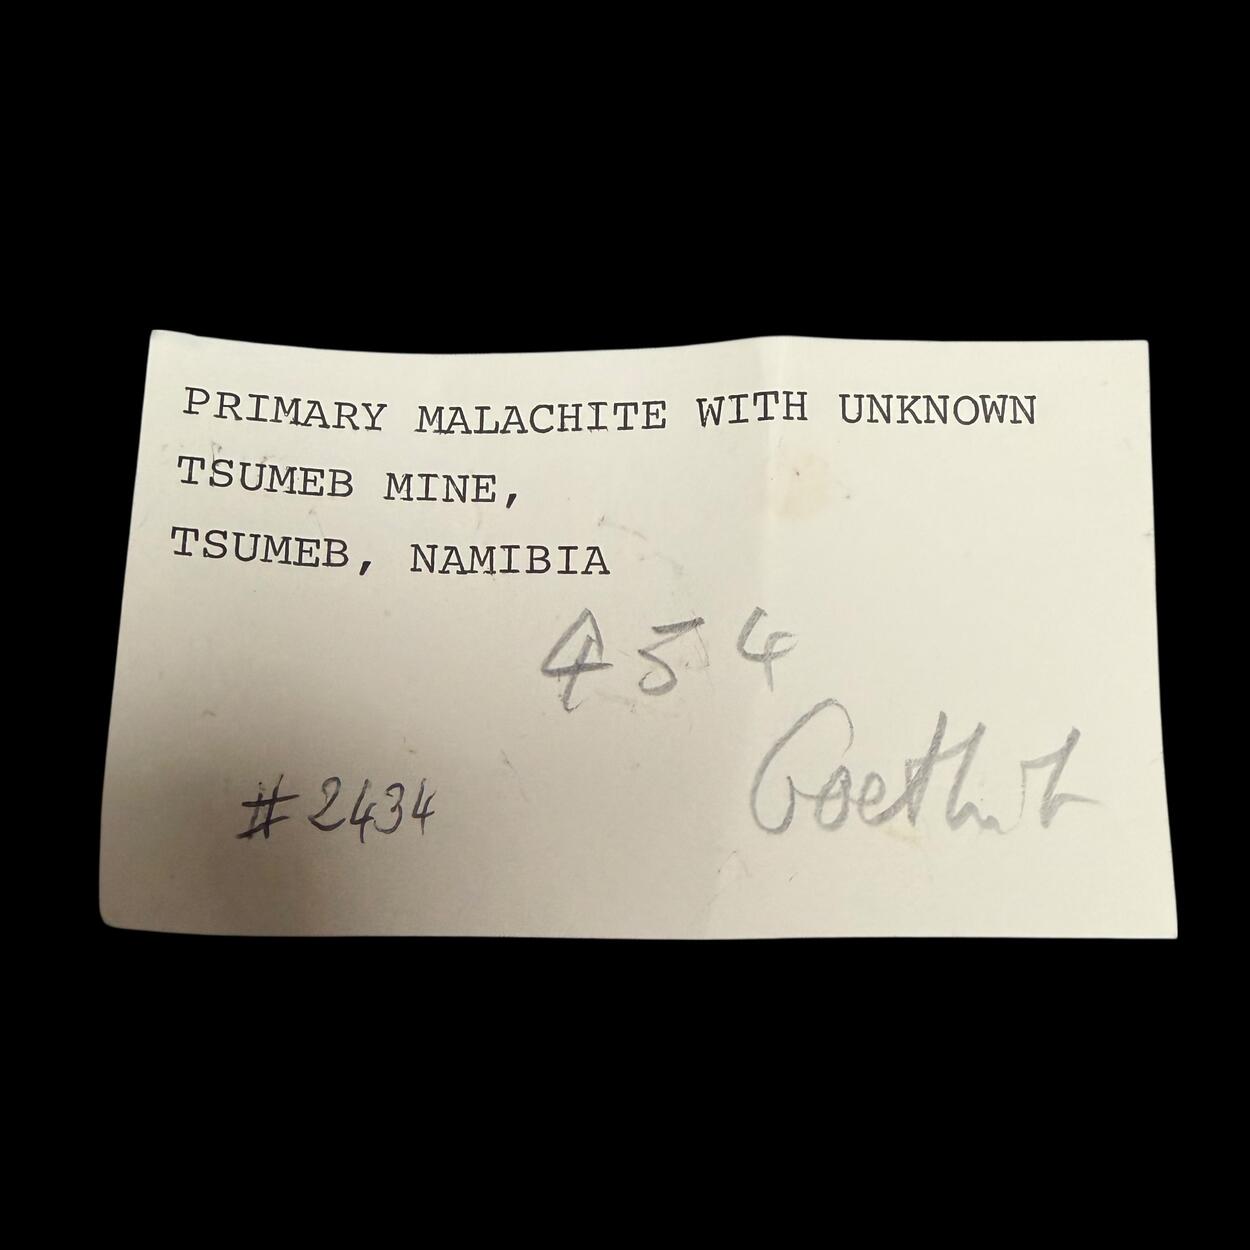 PRIMARY MALACHITE WITH UNKNOWN
TSUMEB MINE,
TSUMEB, NAMIBIA
454
#2434